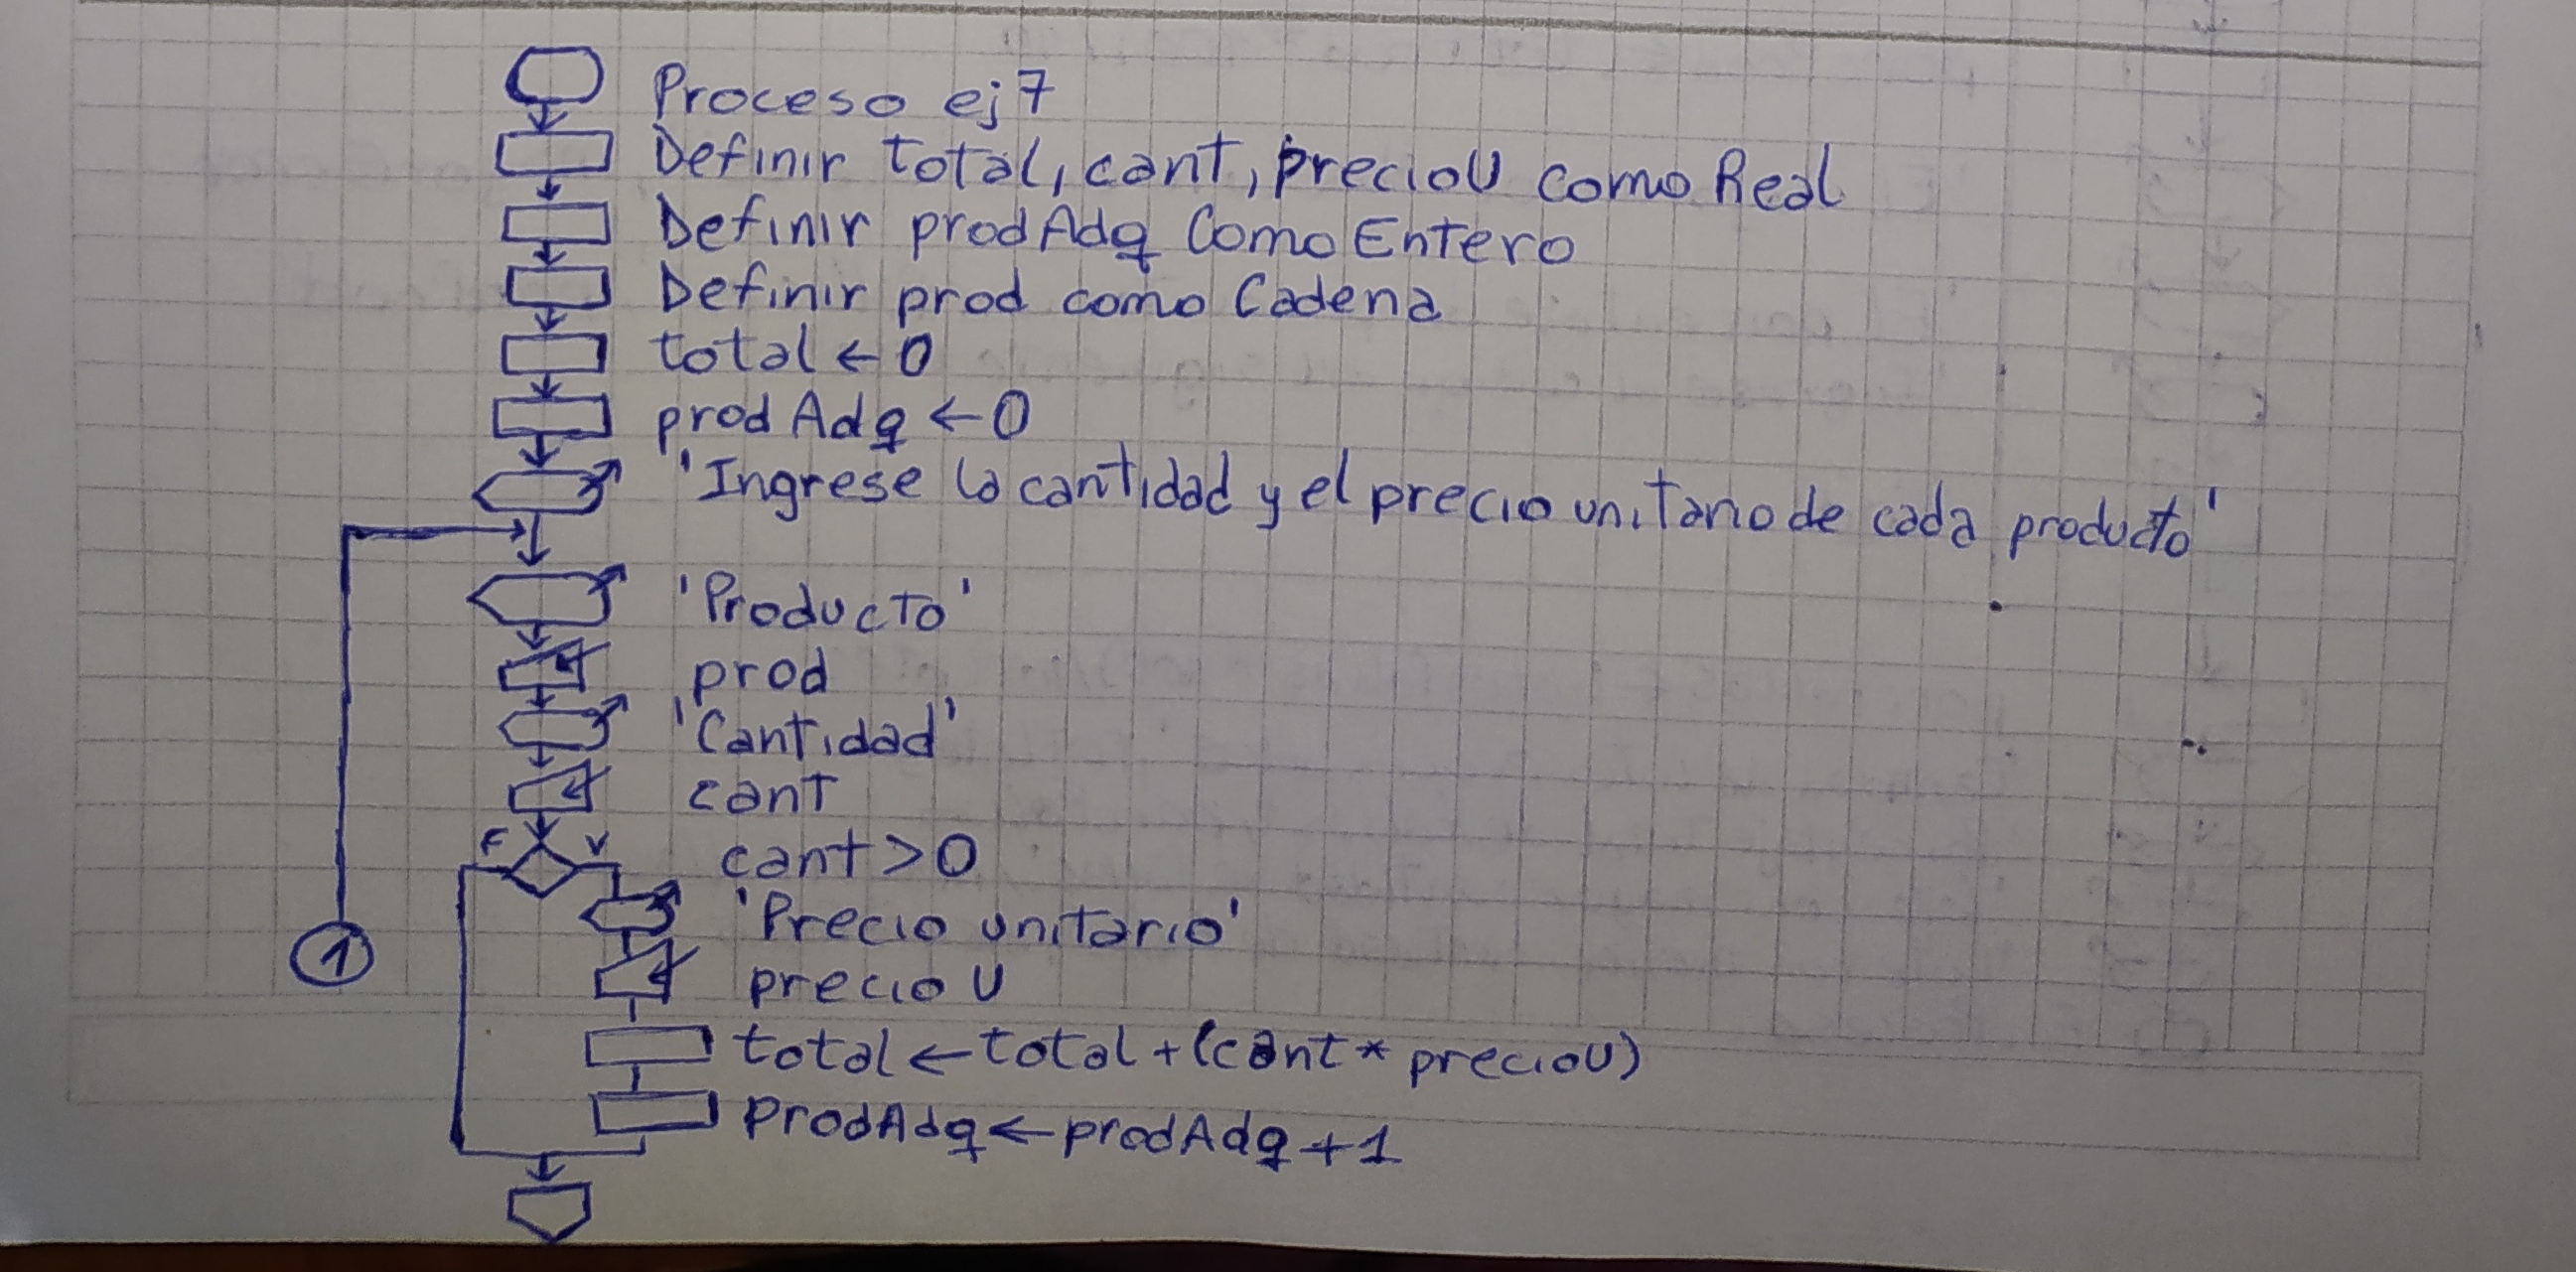 Proceso ej7
Definir total, cant, precioU como Real
Definir prodAdq Como Entero
Definir prod como Cadena
total ← 0
prodAdq ← 0
'Ingrese la cantidad y el precio unitario de cada producto'
'Producto'
prod
'Cantidad'
cant
F V cant > 0
'Precio unitario'
precioU
1
total ← total + (cant * precioU)
ProdAdq ← prodAdq + 1